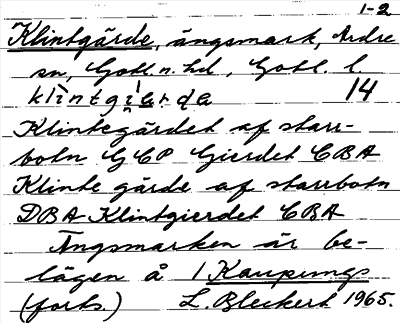 1-2
Klintgärde, ängsmark, Ardre
sn, Gotl. n. hd, Gotl. l.
klìntgi̯árda 14
Klintegärdet af starr-
botn GCP Gierdet CBA
Klinte gärde af starrbotn
DBA Klintgierdet CBA
Ängsmarken är be-
lägen å 1 Kaupungs
(forts.) L. Bleckert 1965.